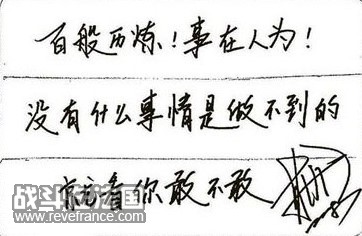 百般历炼！事在人为！
没有什么事情是做不到的
就看你敢不敢
战斗在法国
www.revefrance.com